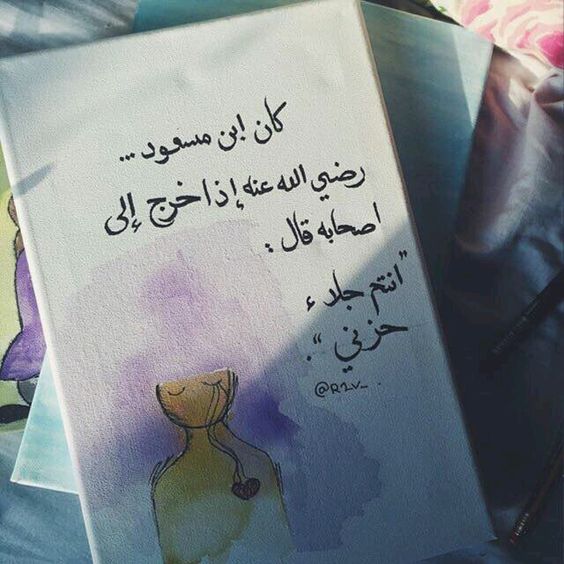 كان ابن مسعود ...
رضي الله عنه إذا خرج إلى
اصحابه قال :
"انتم جلاء
حزني".
@R1v_ .